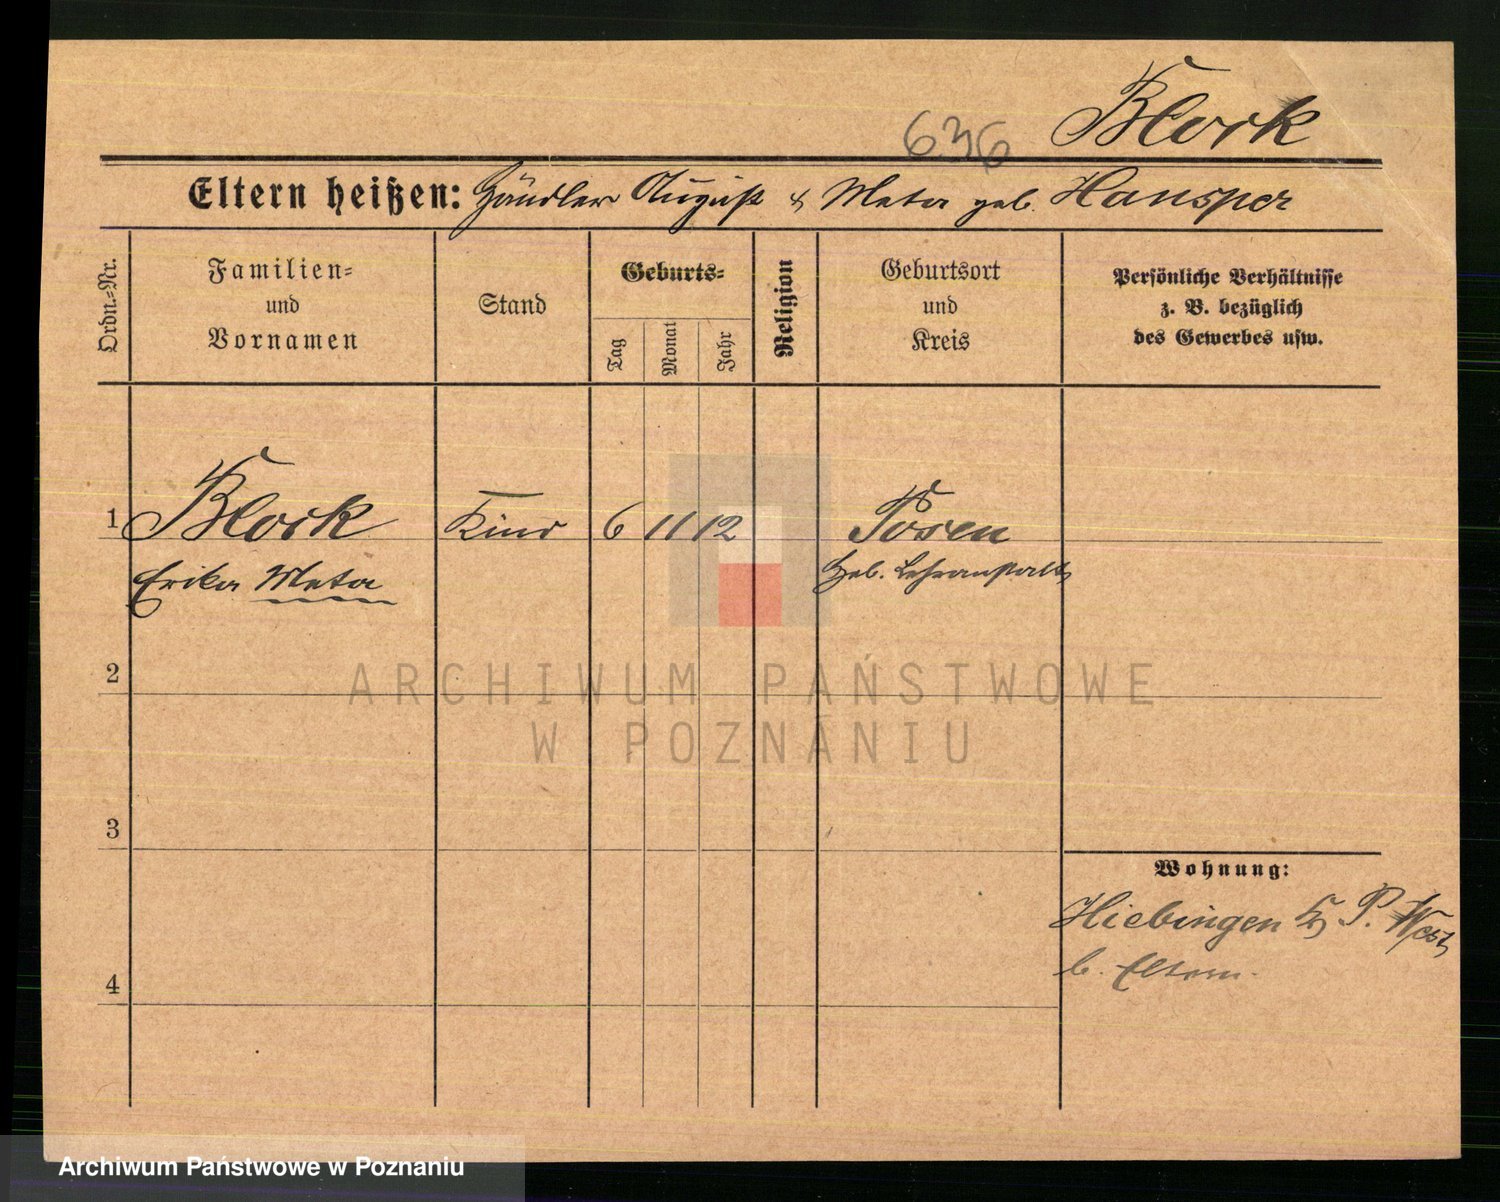 636 Block
Eltern heißen: Händler August & Meta geb. Hansper
Ordn.=Nr.
Familien=
und
Vornamen
Stand
Geburts=
Tag
Monat
Jahr
Religion
Geburtsort
und
Kreis
Persönliche Verhältnisse
z. B. bezüglich
des Gewerbes usw.
1 Block Kind 6 11 12 Posen
Erika Meta Heb. Lehranstalt
2
ARCHIWUM PAŃSTWOWE
W POZNANIU
3
Wohnung:
Hiebingen P. West
4
b. Eltern.
Archiwum Państwowe w Poznaniu